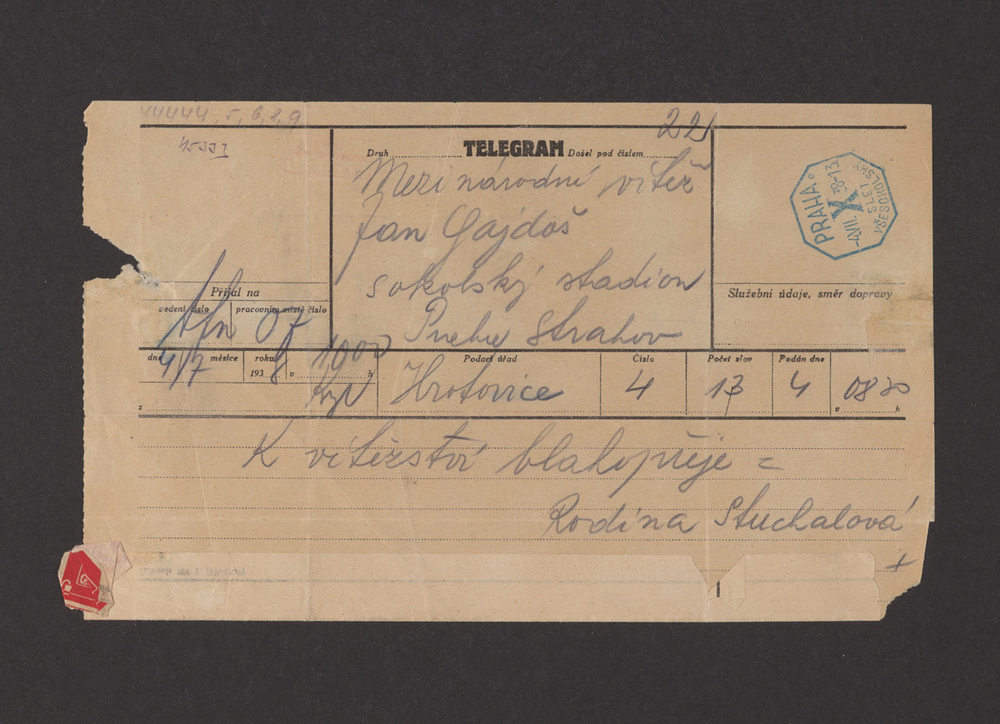 44444, 5, 6, 8, 9
22
Druh TELEGRAM Došel pod číslem
Mezinárodní vítěz
Jan Gajdoš
sokolský stadion
Praha Strahov
PRAHA
X
-4.VII. 38-13
SLET
VŠESOKOLSKÝ
Přijal na
vedení číslo pracovním místě číslo
07
Služební údaje, směr dopravy
dne měsíce roku Podací úřad Číslo Počet slov Podán dne
4/7 1938 v 1000 h Hrotovice 4 13 4 v 0820 h
z
K vítězství blahopřeje =
Rodina Stuchalová
+